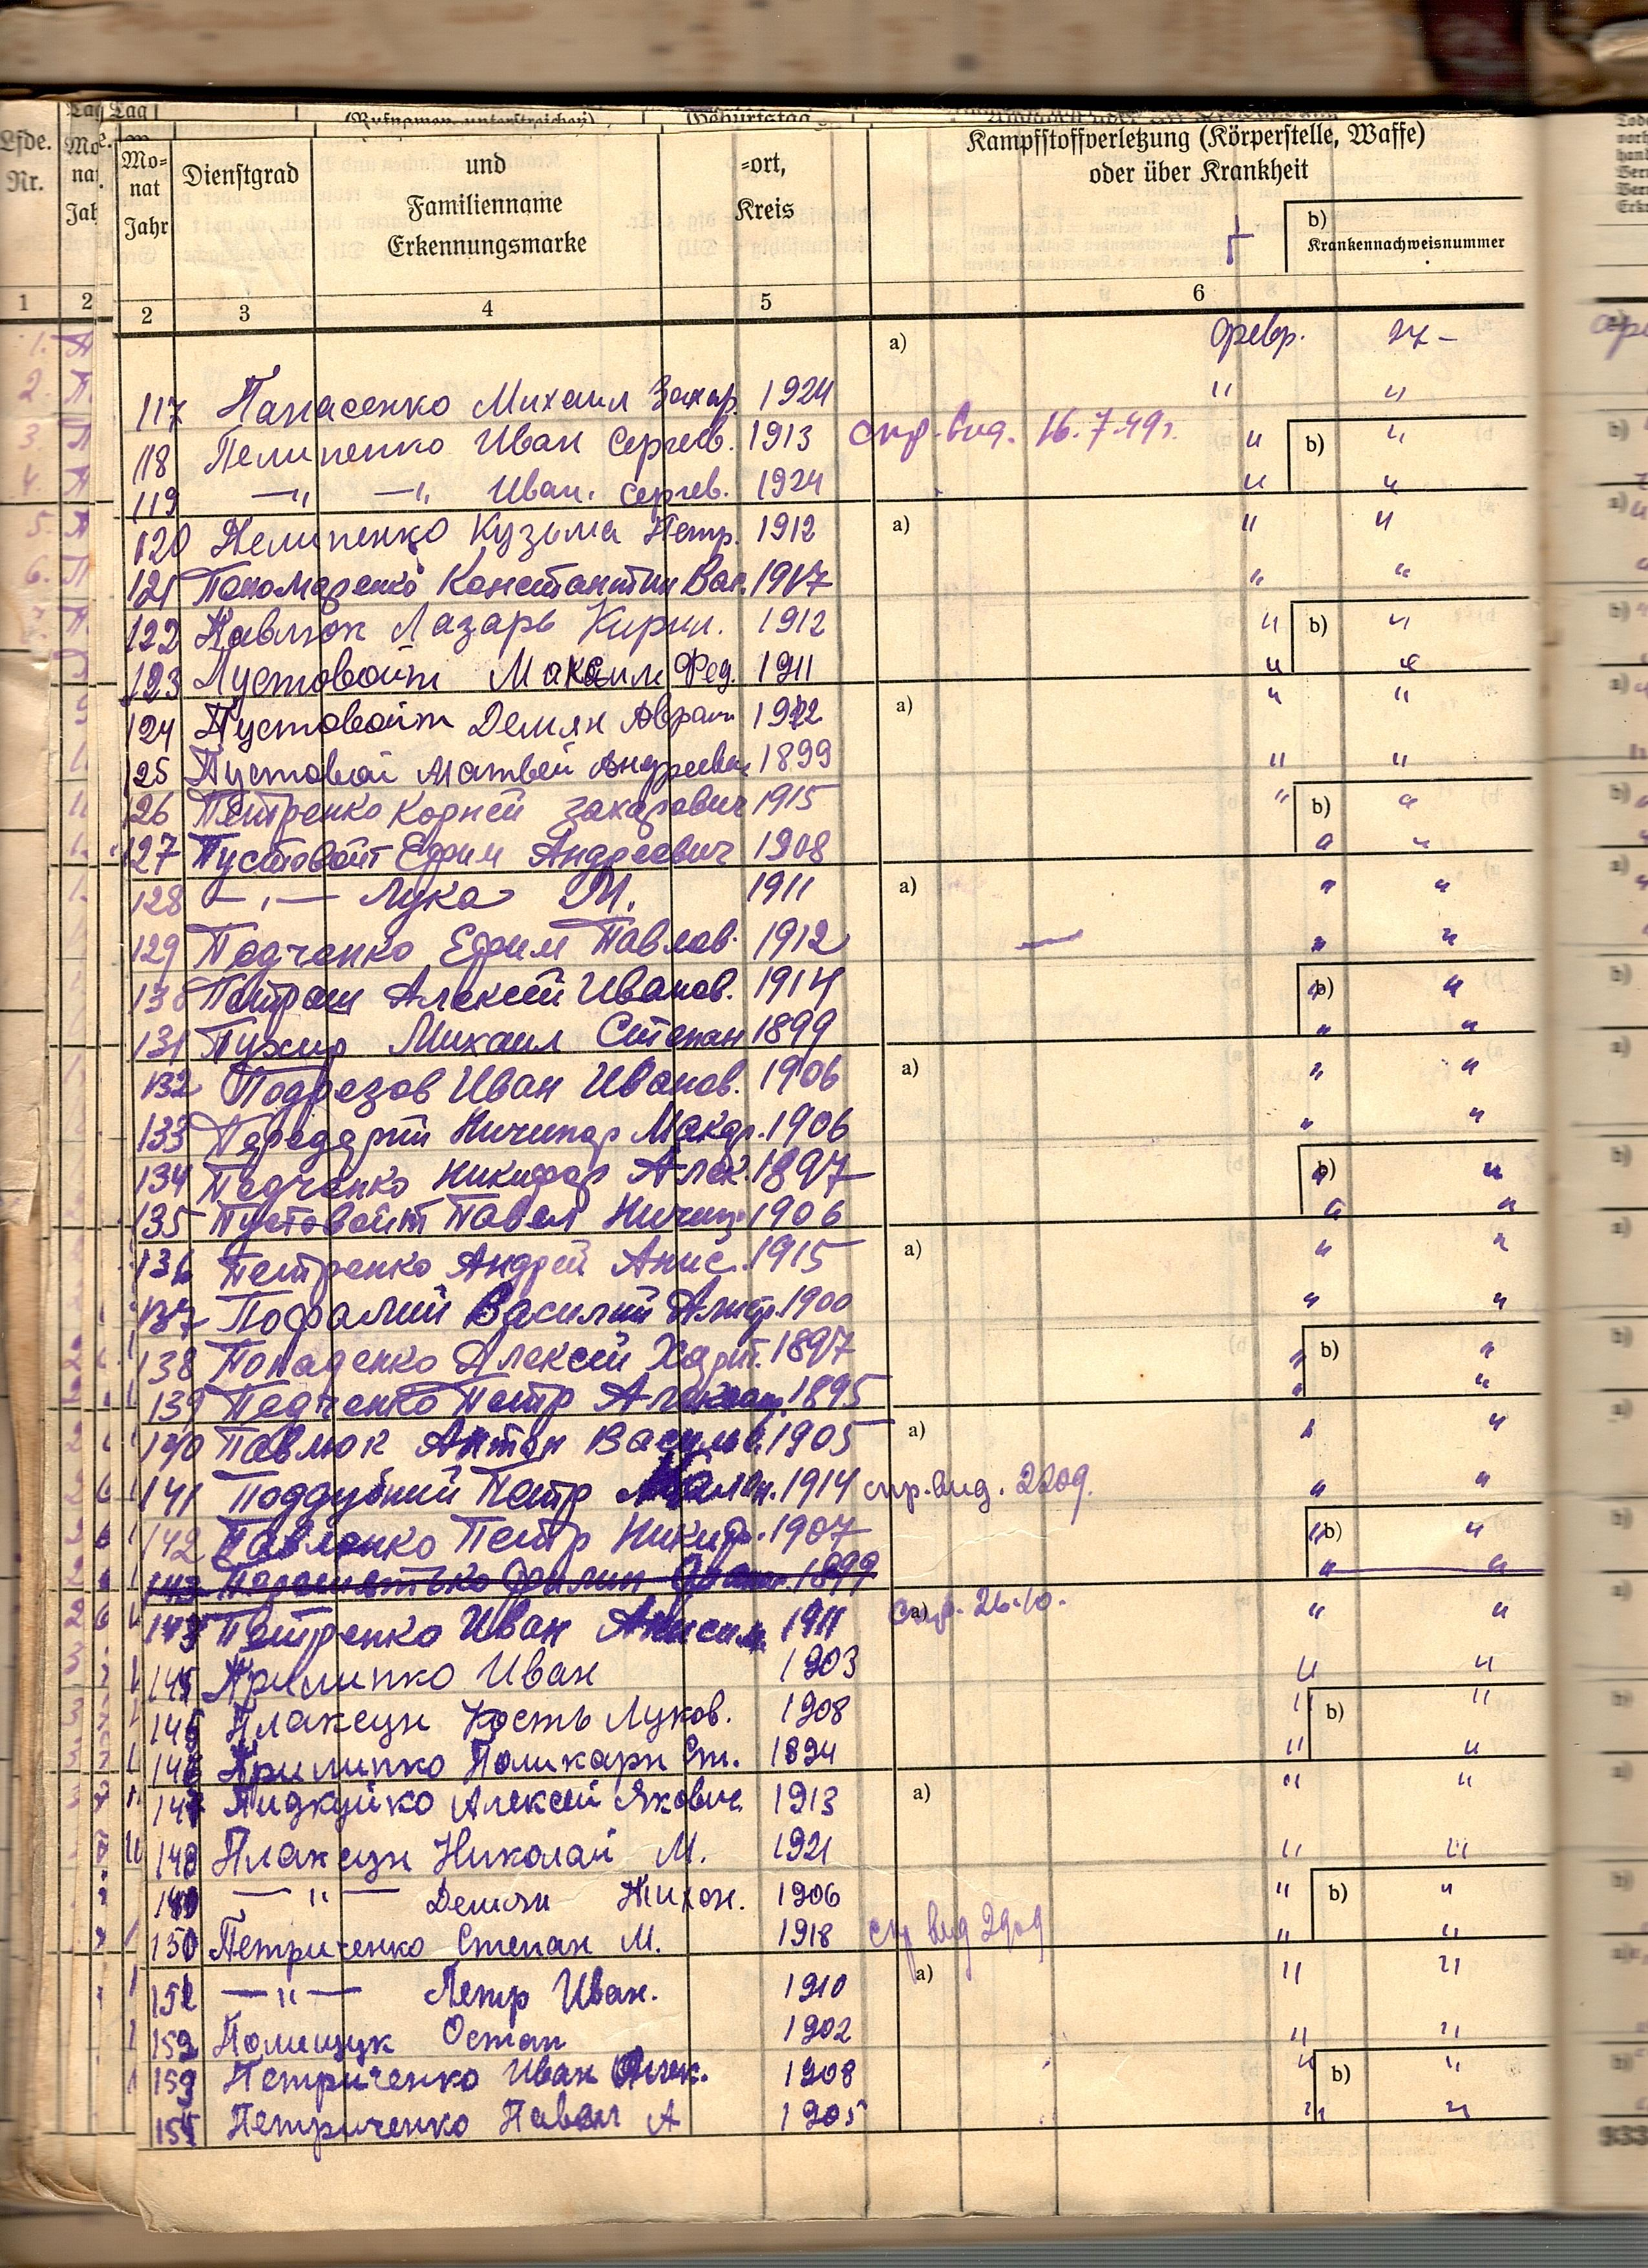 Lfde. Nr.
Mo= nat Jahr
Dienstgrad
(Rufnamen unterstreichen)
und Familienname Erkennungsmarke
Geburtstag
=ort, Kreis
Kampfstoffverletzung (Körperstelle, Waffe)
oder über Krankheit
b)
Krankennachweisnummer
1 2 2 3 4 5 6
a) февр. 27 –
117 Панасенко Михаил Захар. 1924 " "
118 Пелипенко Иван Сергеев. 1913 спр. выд. 16.7.49г. " b) "
119 —"— —"— Иван. Сергев. 1924 " "
120 Пелипенко Кузьма Петр. 1912 a) " "
121 Пономаренко Константин Вас. 1917 " "
122 Павлюк Лазарь Кирил. 1912 " b) "
123 Пустовойт Максим Фед. 1911 " "
124 Пустовойт Демян Аврам 1912 a) " "
125 Пустовой Матвей Андреевич 1899 " "
126 Петренко Корней Захарович 1915 " b) "
127 Пустовойт Ефим Андреевич 1908 " "
128 —"— Лука М. 1911 a) " "
129 Педченко Ефим Павлов. 1912 — " "
130 Петраш Алексей Иванов. 1914 b) "
131 Пухир Михаил Степан 1899 " "
132 Подрезов Иван Иванов. 1906 a) " "
133 Передерий Ничипор Макар. 1906 " "
134 Педченко Никифор Алек. 1897 b) "
135 Пустовойт Павел Ничип. 1906 " "
136 Петренко Андрей Анис. 1915 a) " "
137 Пофалий Василий Дмитр. 1900 " "
138 Понаденко Алексей Харит. 1897 " b) "
139 Педченко Петр 1895 " "
140 Павлюк Антон Васильев. 1905 a) " "
141 Поддубний Петр 1914 спр. выд. 2209. " "
142 Павленко Петр Никиф. 1907 b) "
143 Филип 1899 " "
143 Петренко Иван Анисим. 1911 a) спр. 26.10. " "
145 Прилипко Иван 1903 " "
145 Плаксун Кость Луков. 1908 " b) "
146 Прилипко Поликарп Ст. 1894 " "
147 Пидкуйко Алексей Якович. 1913 a) " "
148 Плаксун Николай М. 1921 " "
149 —"— Демян Тихон. 1906 " b) "
150 Петриченко Степан М. 1918 спр выд 2909 " "
151 —"— Петр Иван. 1910 a) " "
152 Полищук Остап 1902 " "
153 Петриченко Иван Алек. 1908 " b) "
154 Петриченко Павел А 1905 " "